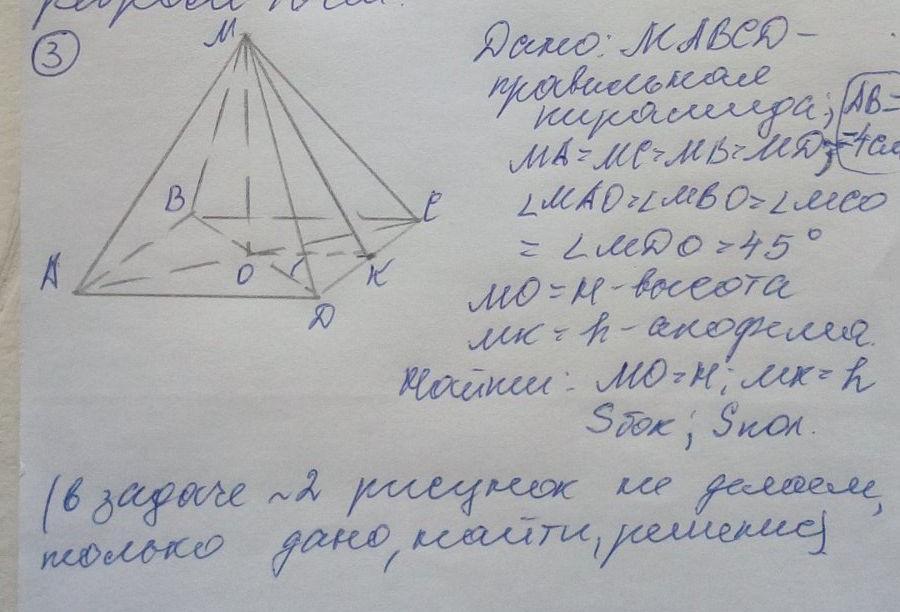 3
M
B
C
A
O
K
D
Дано: MABCD –
правильная
пирамида; AB=
MA=MC=MB=MD; =4см
∠MAO=∠MBO=∠MCO
= ∠MDO = 45°
MO = H – высота
MK = h – апофема.
Найти: MO=H; MK=h
Sбок; Sпол.
(в задаче ~2 рисунок не делаем,
только дано, найти, решение)